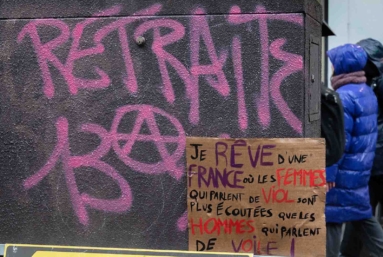 RETRAITE
BA
JE RÊVE D'UNE
FRANCE OÙ LES FEMMES
QUI PARLENT DE VIOL SONT
PLUS ÉCOUTÉES QUE LES
HOMMES QUI PARLENT
DE VOILE !